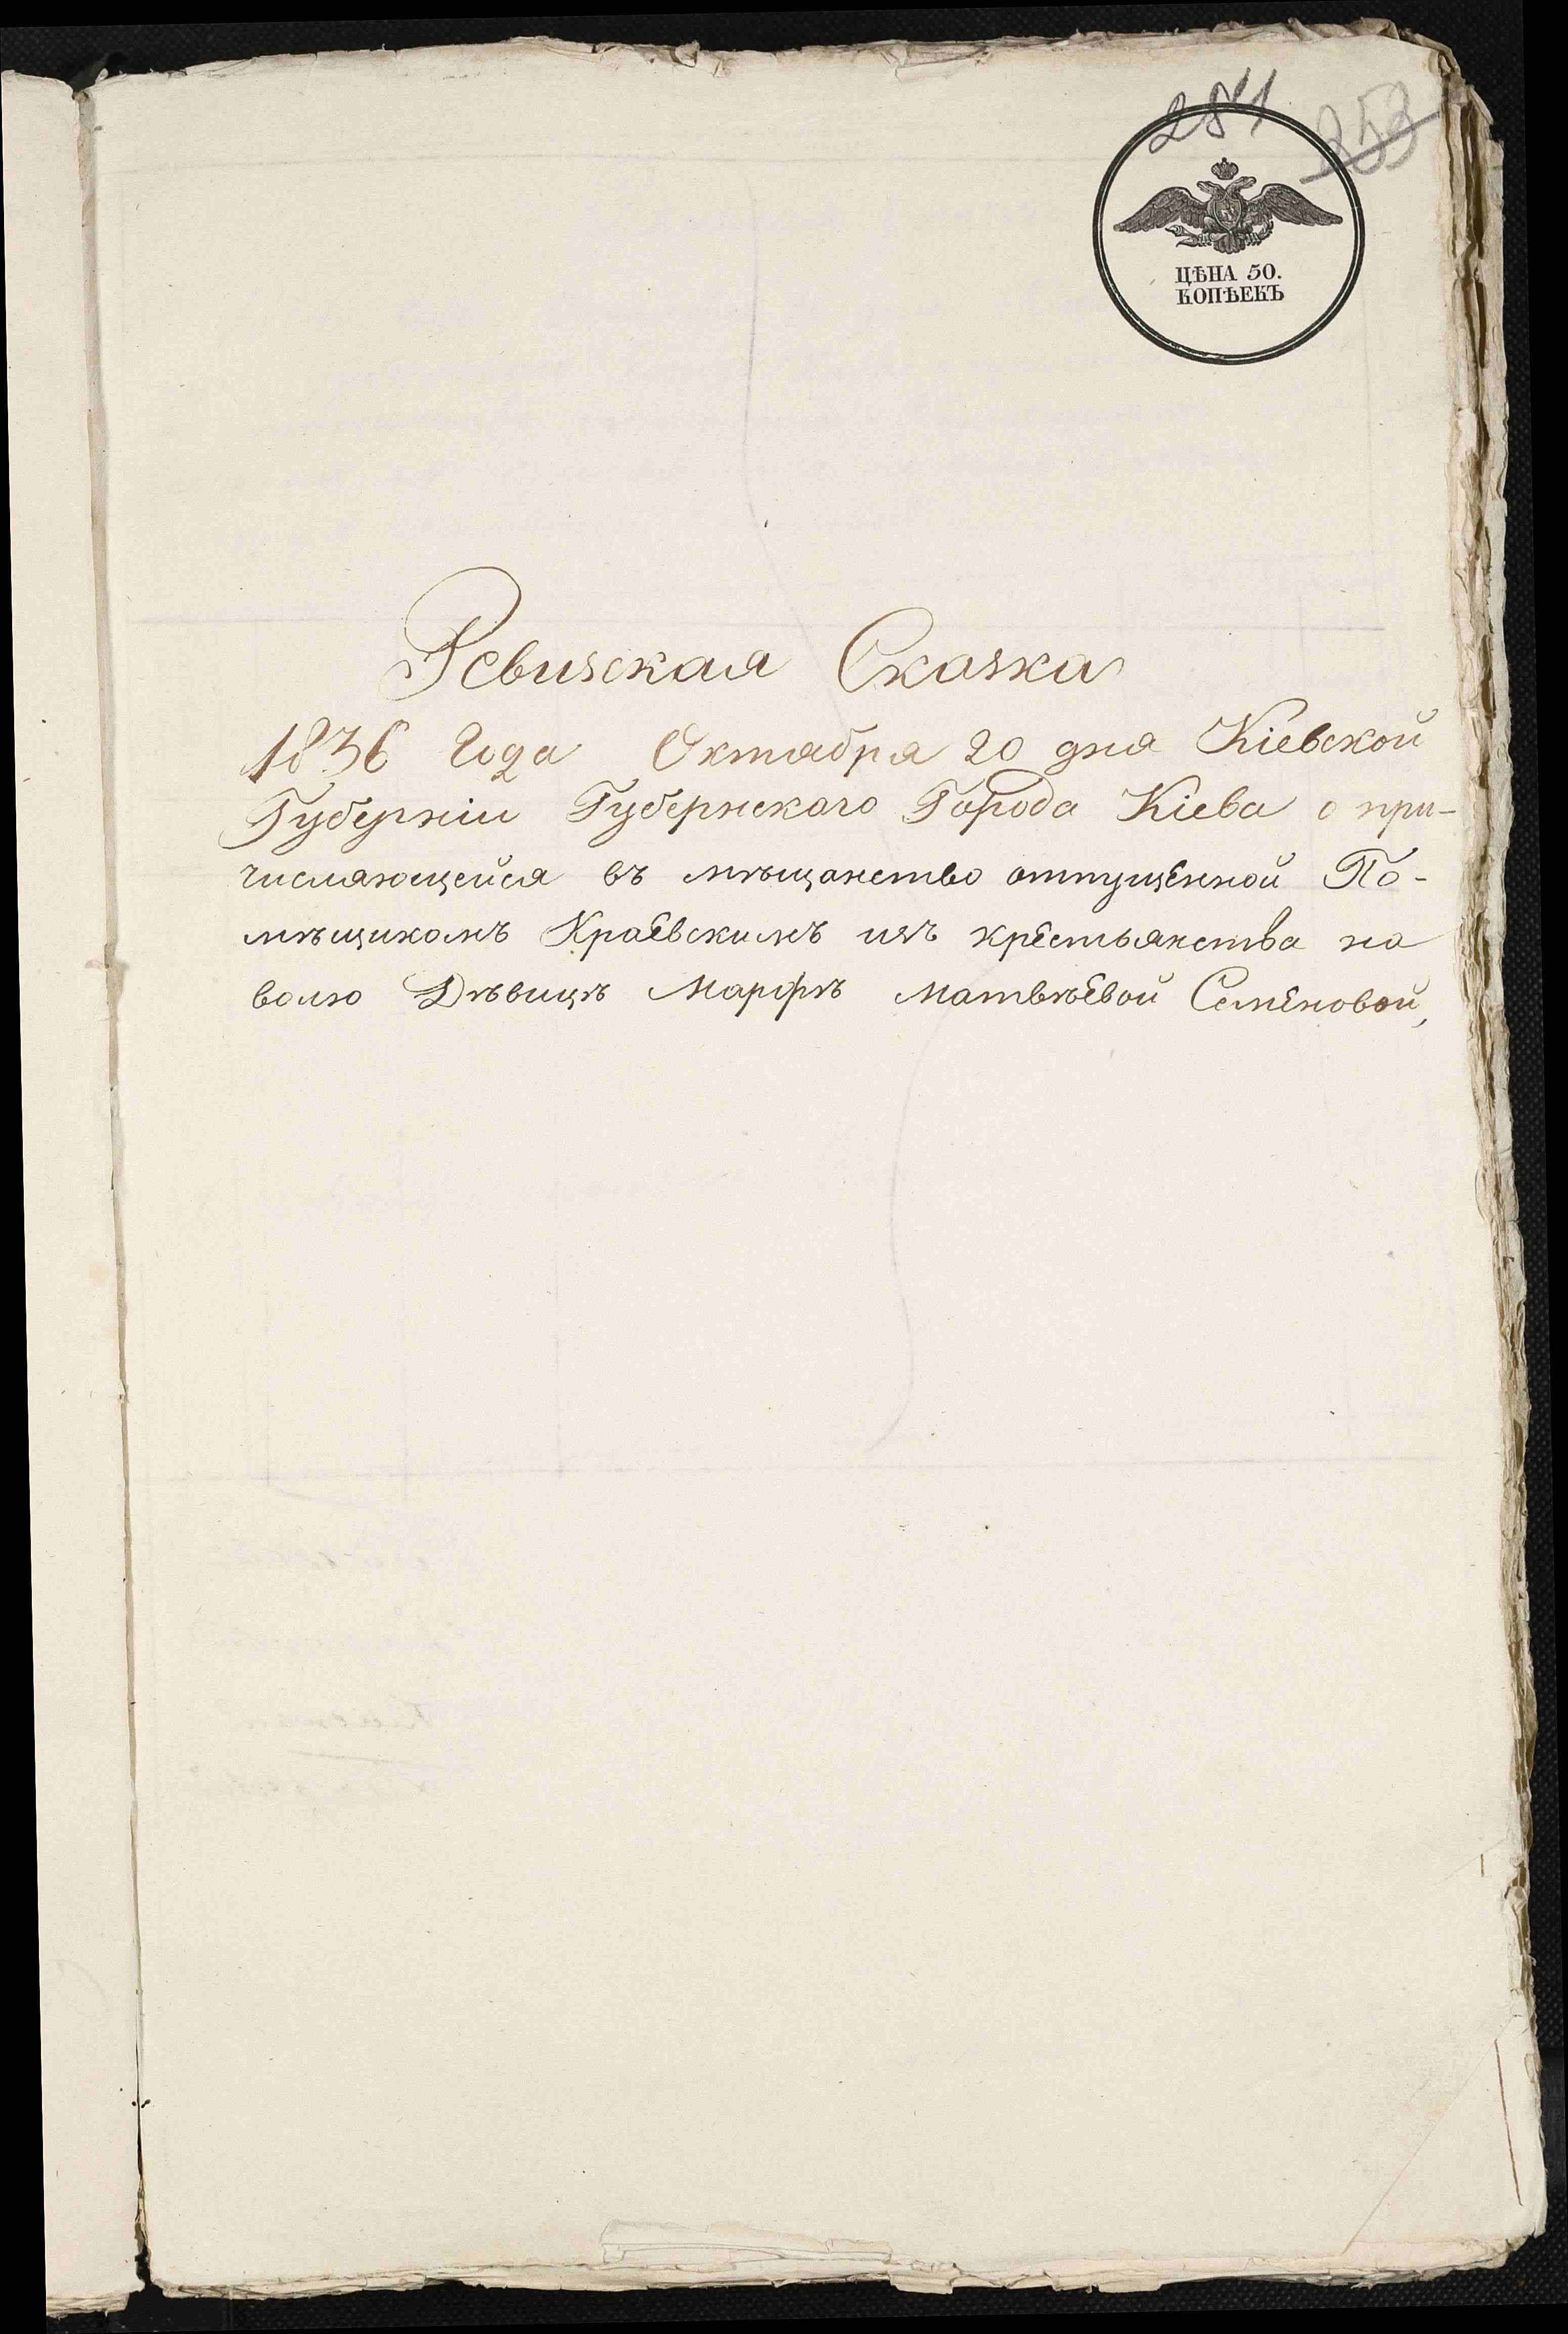 281
253
ЦѢНА 50.
КОПѢЕКЪ
Ревизская Сказка
1836 Года Октября 20 дня Кіевской
Губерніи Губернскаго Города Кіева о при-
числяющейся въ мѣщанство отпущенной По-
мѣщикомъ Краевскимъ изъ крестьянства на
волю Дѣвицѣ Марфѣ Матвѣевой Семеновой,